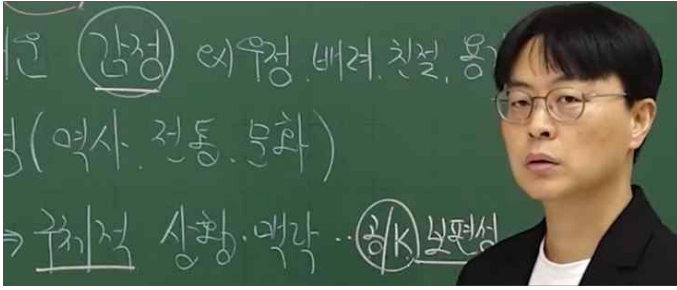 감정 예) 우정. 배려. 친절. 용
(역사. 전통. 문화)
⇒ 구체적 상황·맥락 ·· 공/K. 보편성